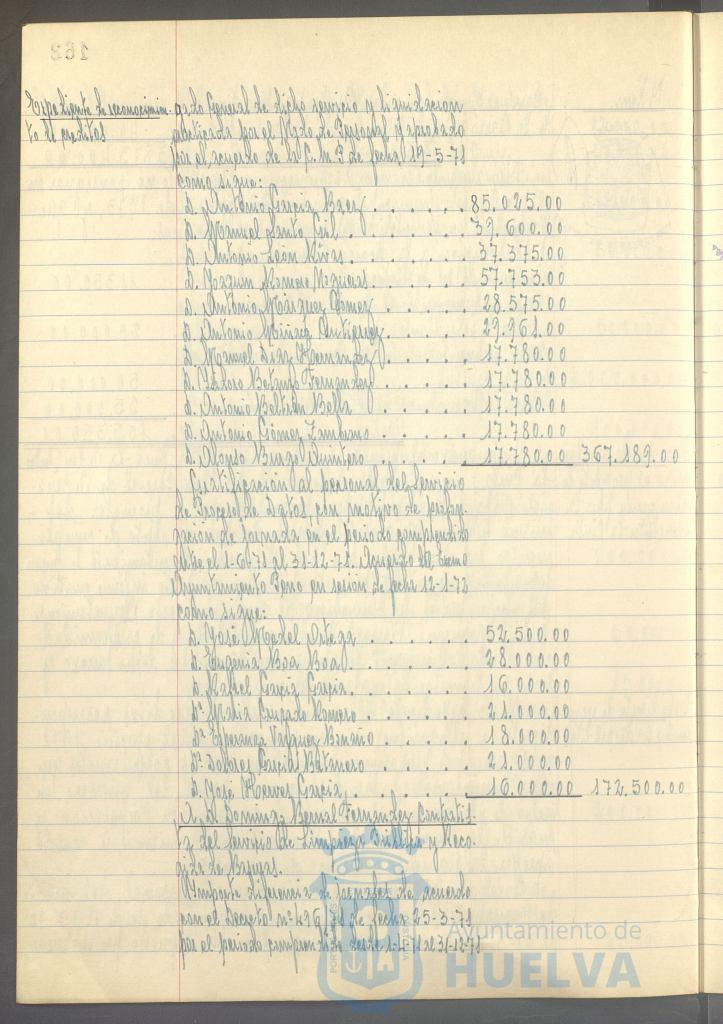 162
Expediente de reconocimien-
to de creditos
do General de dicho servicio y liquidación
practicada por el Ngdo de Personal y aprobado
por el acuerdo de la C.M.P. de fecha 19-5-71
como sigue:
D. Antonio Garcia Baez . . . . . . 85.025.00
D. Manuel Santo Gil . . . . . . 39.600.00
D. Antonio León Rivas . . . . . 37.375.00
D. Joaquin Romero Nogueras . . . . 57.753.00
D. Antonio Márquez Gómez . . . . 28.575.00
D. Antonio Antiguez . . . . 29.961.00
D. Manuel Diaz Hernandez . . . . 17.780.00
D. Isidoro Fernandez . . . . 17.780.00
D. Antonio Beltrán . . . . 17.780.00
D. Antonio Gómez Zambrano . . . . 17.780.00
D. Alonso Quintero . . . . 17.780.00 367.189.00
Gratificación al personal del Servicio
de Proceso de Datos, con motivo de prolon-
gación de jornada en el periodo comprendido
entre el 1-6-71 al 31-12-71. Acuerdo del Excmo
Ayuntamiento Pleno en sesión de fecha 12-1-72
como sigue:
D. José Ortega . . . . 52.500.00
D. Eugenia Boa Boa . . . . 28.000.00
D. Rafael Garcia Garcia . . . . 16.000.00
Dª Maria Romero . . . . 21.000.00
Dª Esperanza Vazquez . . . . 18.000.00
Dª Dolores Betanero . . . . 21.000.00
D. José Garcia . . . . 16.000.00 172.500.00
A D. Domingo Bernal Fernandez Contratis-
ta del Servicio de Limpieza Pública y Reco-
gida de Basuras.
Importe diferencia de jornales de acuerdo
con el Decreto nº 496/71 de fecha 25-3-71
por el periodo comprendido desde 1-4-71 al 31-12-71
Ayuntamiento de
HUELVA